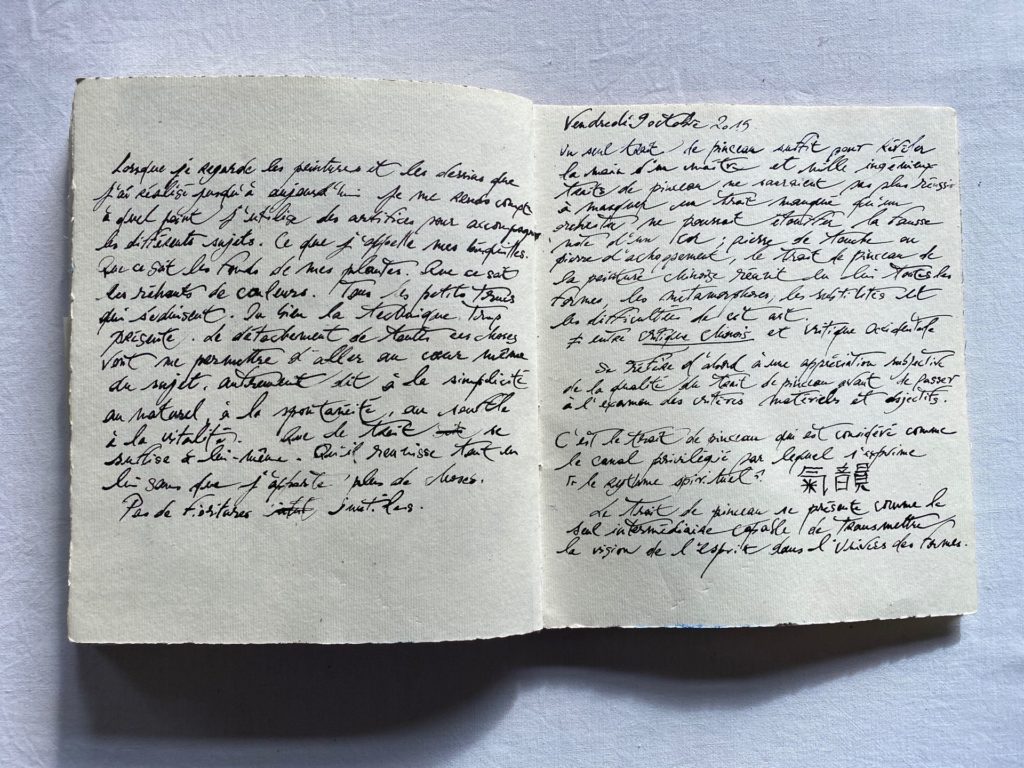 Lorsque je regarde les peintures et les dessins que
j'ai réalisé jusqu'à aujourd'hui je me rends compte
à quel point j'utilise des artifices pour accompagner
les différents sujets. Ce que j'appelle mes béquilles.
Que ce soit les fonds de mes plantes. Que ce soit
les réhauts de couleurs. Tous les petits trucs
qui séduisent. Ou bien la technique trop
présente. Le détachement de toutes ces choses
vont me permettre d'aller au cœur même
du sujet, autrement dit à la simplicité
au naturel, à la spontanéité, au souffle
à la vitalité. Que le trait se
suffise à lui-même. Qu'il réunisse tout en
lui sans que j'apporte plus de choses.
Pas de fioritures inutiles.
Vendredi 9 octobre 2015
Un seul trait de pinceau suffit pour révéler
la main d'un maître et mille ingénieux
traits de pinceau ne sauraient pas plus réussir
à masquer un trait manqué qu'un
orchestre ne pourrait étouffer la fausse
note d'un cor ; pierre de touche ou
pierre d'achoppement, le trait de pinceau de
la peinture chinoise réunit en lui toutes les
formes, les métamorphoses, les subtilités et
les difficultés de cet art.
≠ entre critique chinois et critique occidentale
Se réfère d'abord à une appréciation subjective
de la qualité du trait de pinceau avant de passer
à l'examen des critères matériels et objectifs.
C'est le trait de pinceau qui est considéré comme
le canal privilégié par lequel s'exprime
le rythme spirituel" 氣韻
Le trait de pinceau se présente comme le
seul intermédiaire capable de transmettre
la vision de l'esprit dans l'univers des formes.